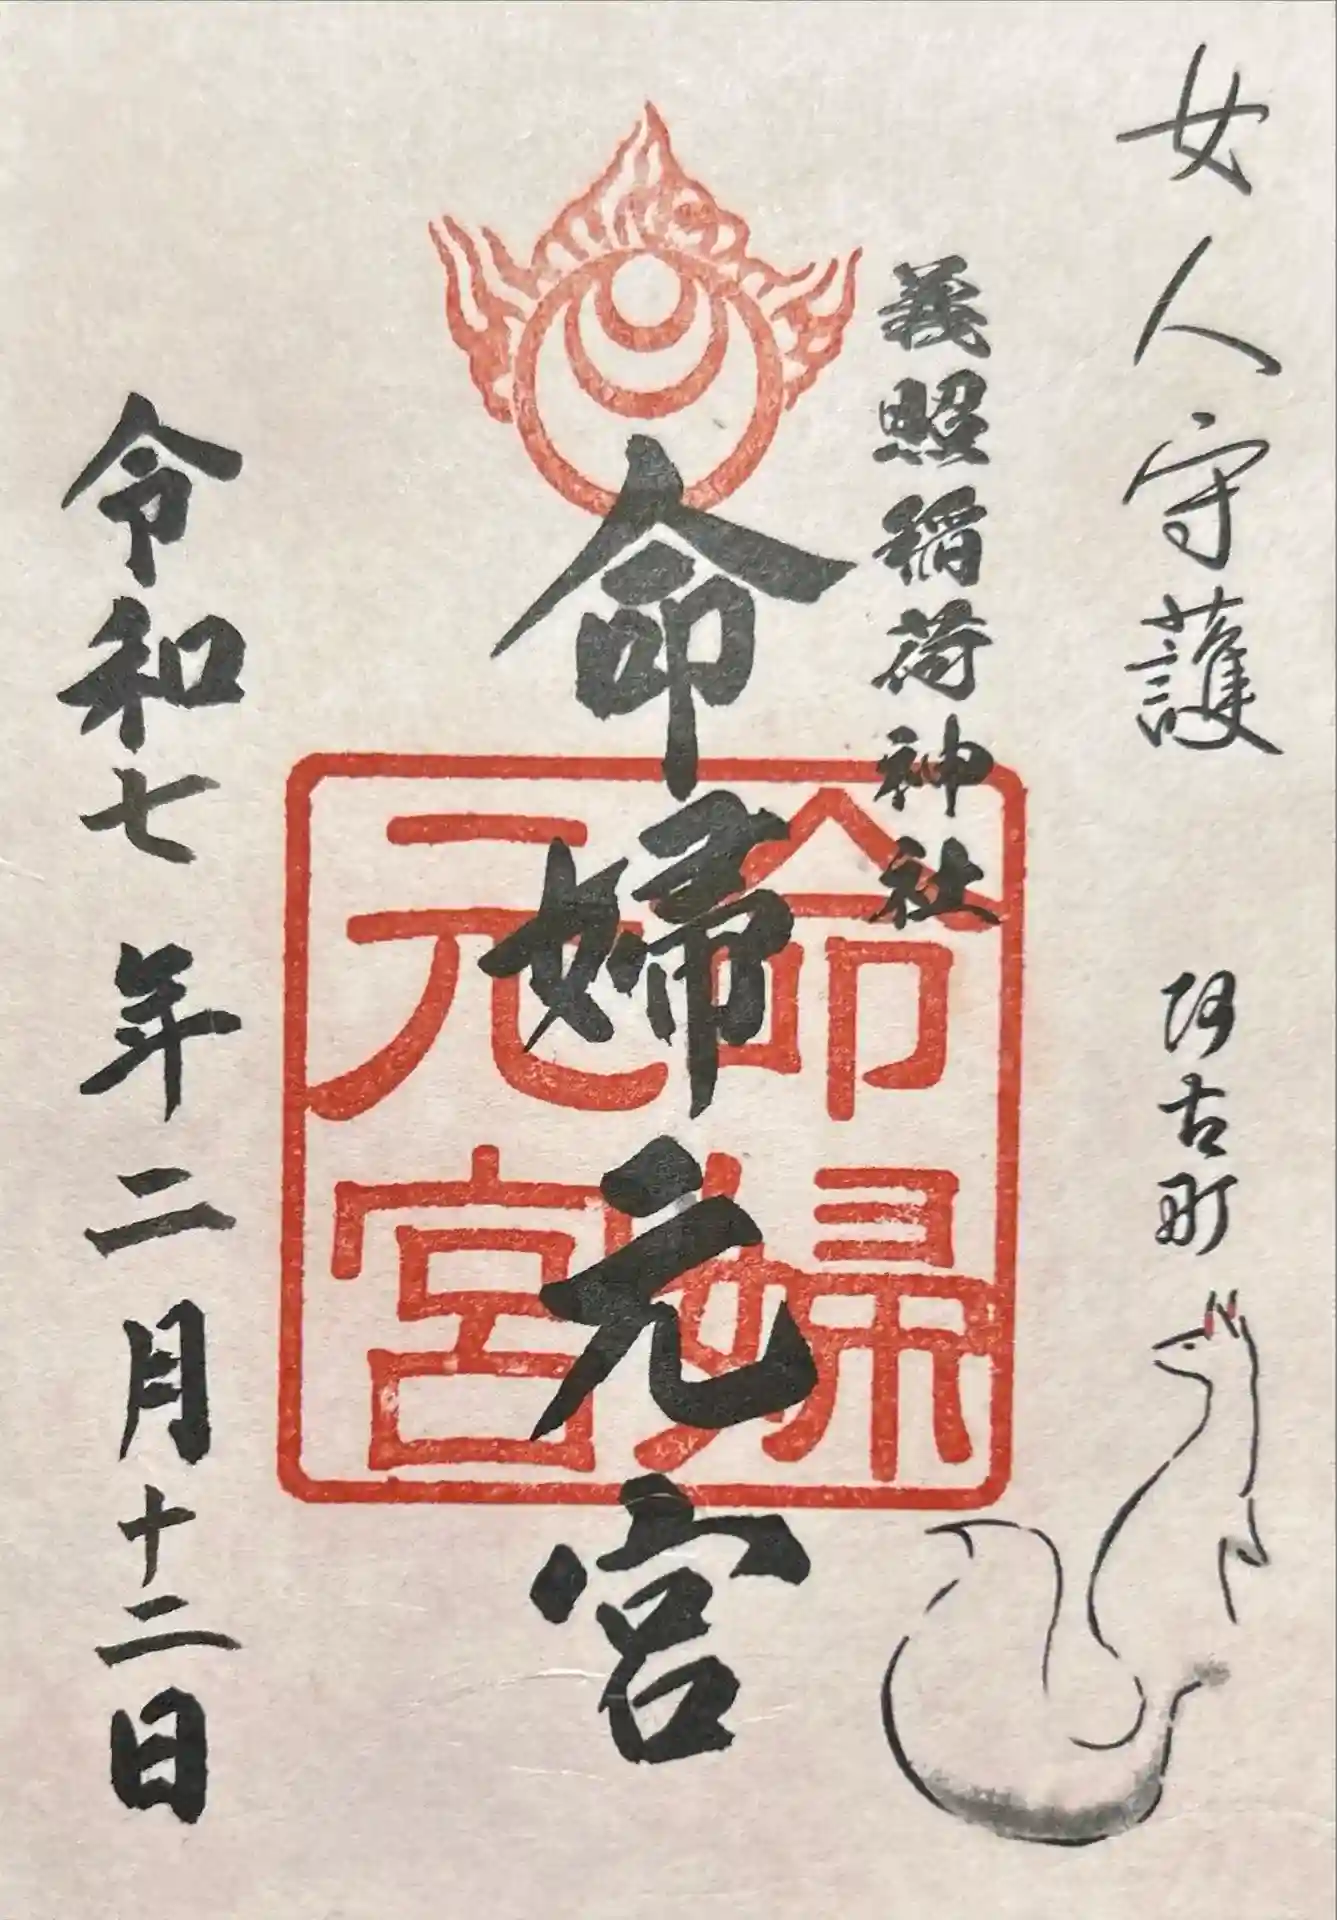 女人守護 阿古町
義照稲荷神社
命婦元宮
命婦元宮
令和七年二月十二日